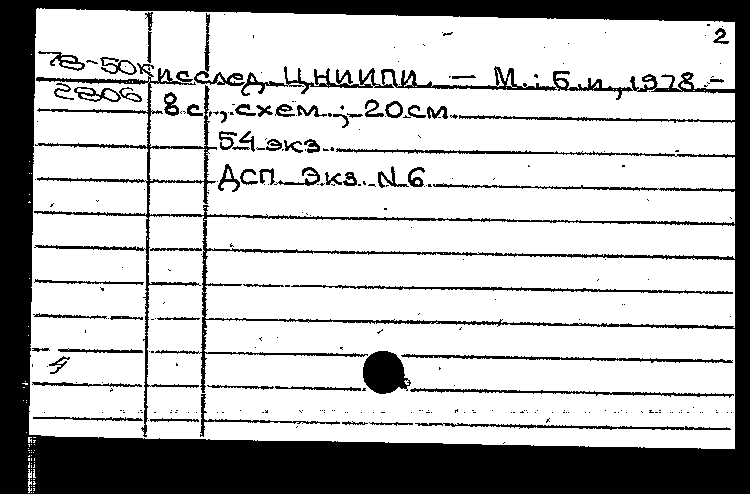 2
78-50к исслед. ЦНИИПИ. — М.: Б.и., 1978.-
2806 8 с., схем.; 20 см.
54 экз.
ДСП. Экз. N 6.
4